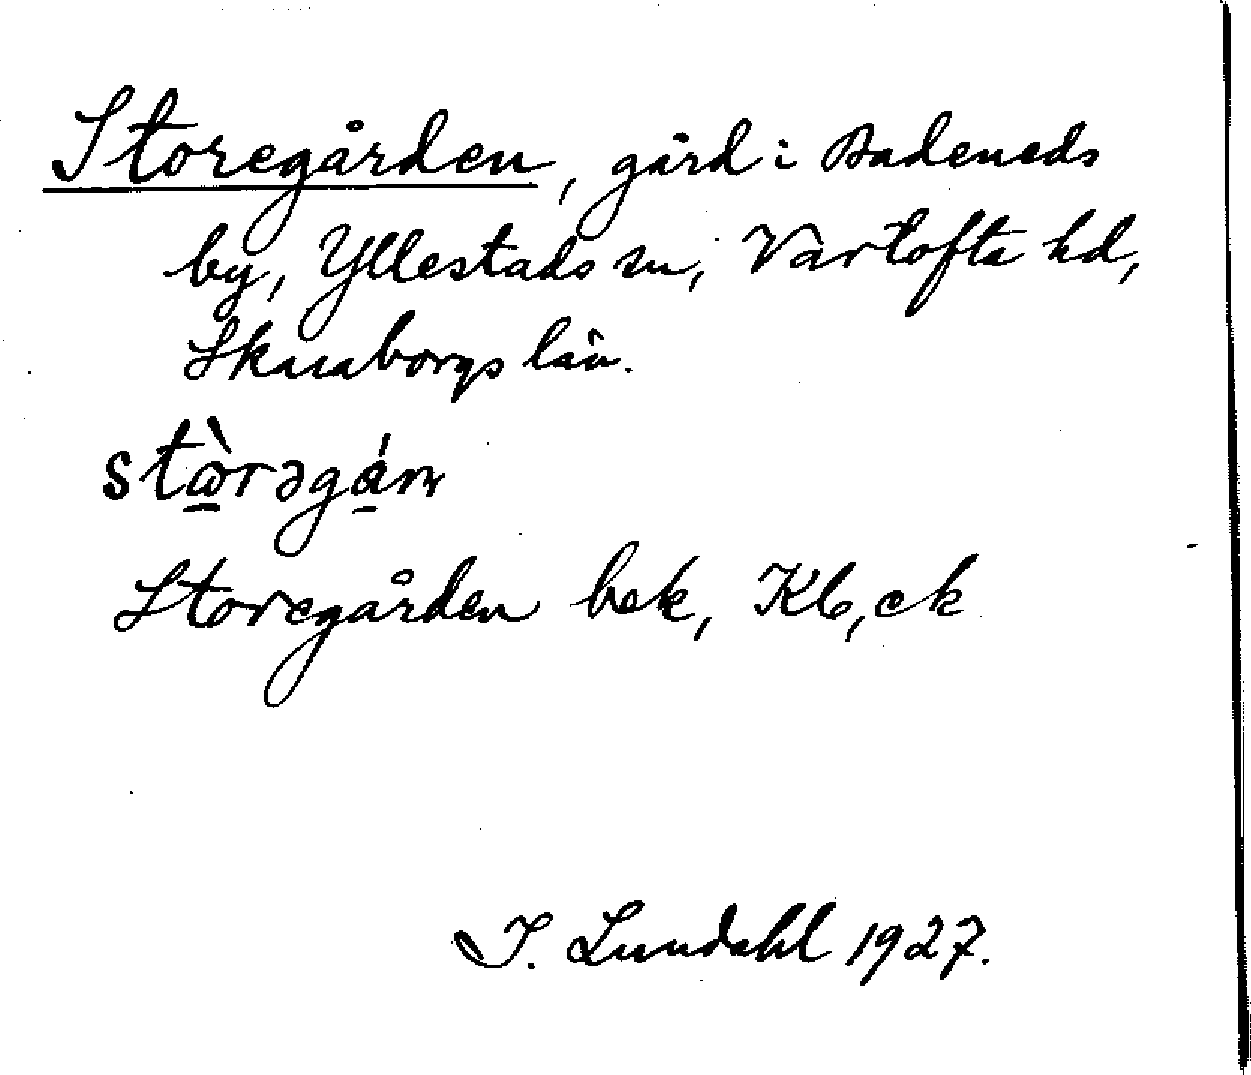 Storegården, gård i Badeneds
by, Yllestads sn, Vartofta hd,
Skaraborgs län.
Storegården bek, Kb, ek
I. Lundahl 1927.